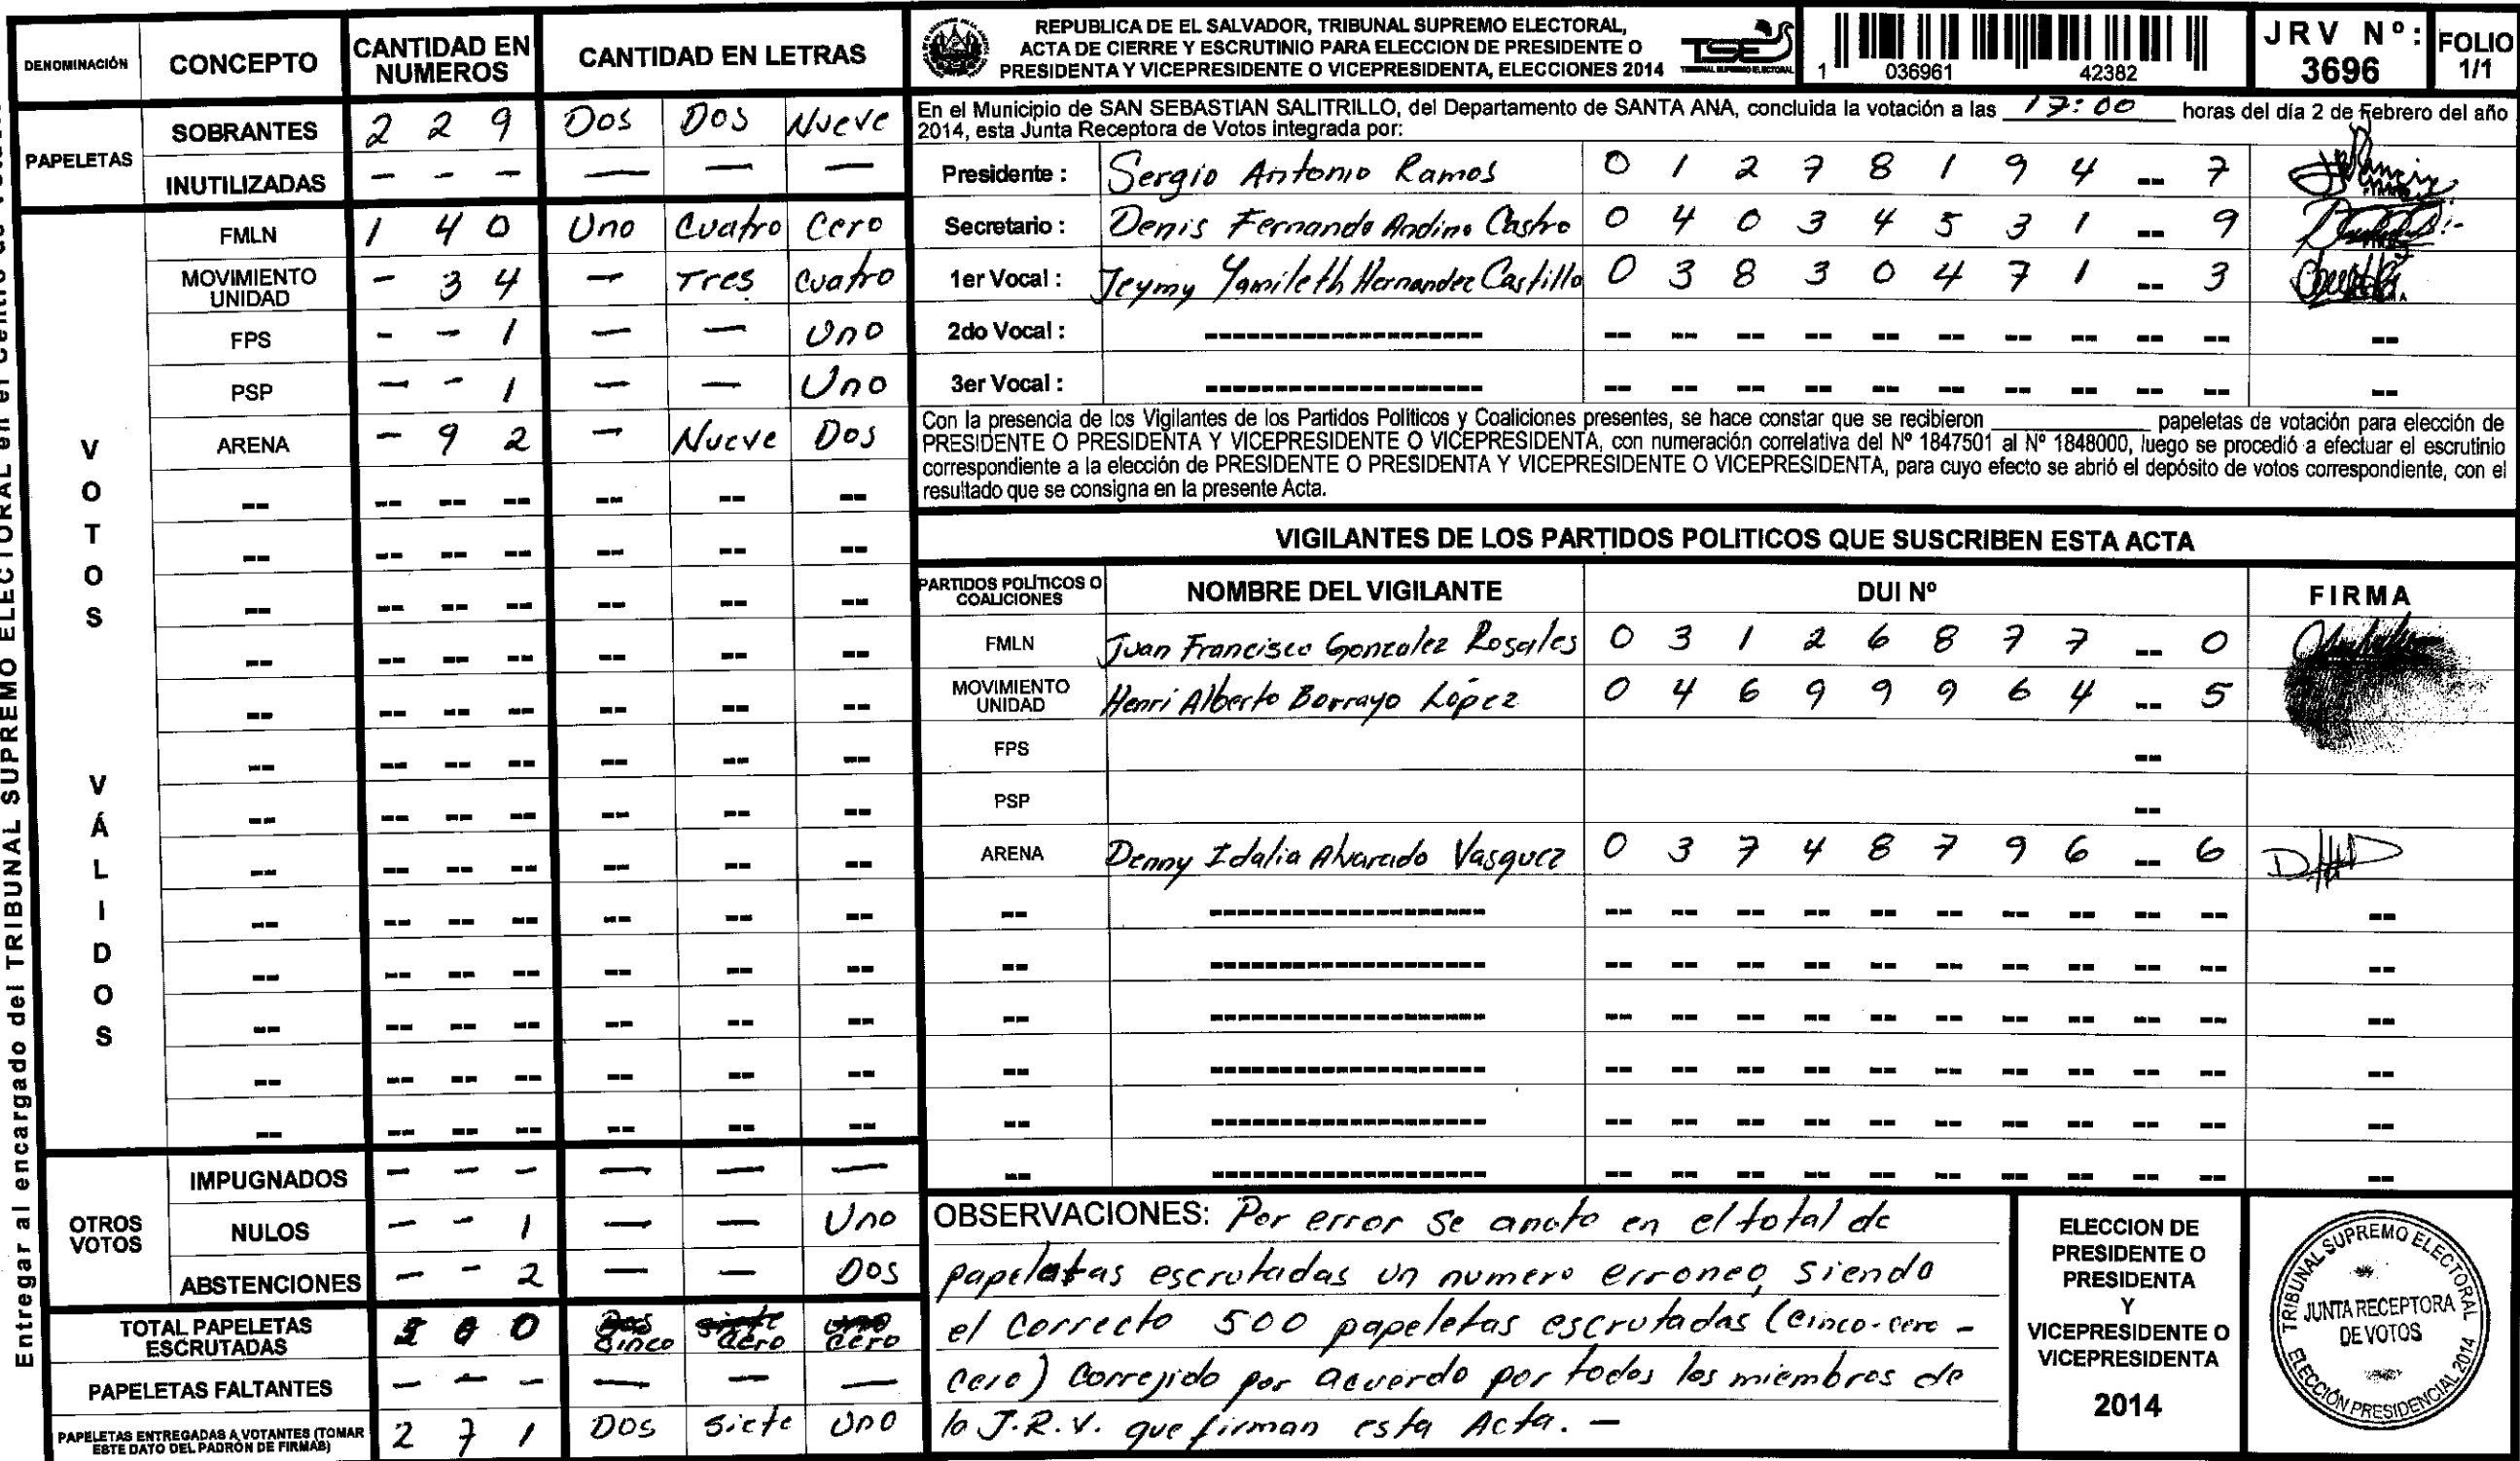 Entregar al encargado del TRIBUNAL SUPREMO ELECTORAL en el Centro de
DENOMINACIÓN CONCEPTO CANTIDAD EN NUMEROS CANTIDAD EN LETRAS
PAPELETAS
SOBRANTES 2 2 9 Dos Dos Nueve
INUTILIZADAS - - - - - -
VOTOS VÁLIDOS
FMLN 1 4 0 Uno Cuatro Cero
MOVIMIENTO UNIDAD - 3 4 - Tres Cuatro
FPS - - 1 - - Uno
PSP - - 1 - - Uno
ARENA - 9 2 - Nueve Dos
OTROS VOTOS
IMPUGNADOS - - - - - -
NULOS - - 1 - - Uno
ABSTENCIONES - - 2 - - Dos
TOTAL PAPELETAS ESCRUTADAS 5 0 0 Dos Siete Uno Cinco Cero Cero
PAPELETAS FALTANTES - - - - - -
PAPELETAS ENTREGADAS A VOTANTES (TOMAR ESTE DATO DEL PADRON DE FIRMAS) 2 7 1 Dos Siete Uno
REPUBLICA DE EL SALVADOR, TRIBUNAL SUPREMO ELECTORAL,
ACTA DE CIERRE Y ESCRUTINIO PARA ELECCION DE PRESIDENTE O
PRESIDENTA Y VICEPRESIDENTE O VICEPRESIDENTA, ELECCIONES 2014
TSE
TRIBUNAL SUPREMO ELECTORAL
1 036961 42382
JRV Nº: 3696
FOLIO 1/1
En el Municipio de SAN SEBASTIAN SALITRILLO, del Departamento de SANTA ANA, concluida la votación a las 17:00 horas del día 2 de Febrero del año
2014, esta Junta Receptora de Votos integrada por:
Presidente : Sergio Antonio Ramos 0 1 2 7 8 1 9 4 -- 7
Secretario : Denis Fernando Andino Castro 0 4 0 3 4 5 3 1 -- 9
1er Vocal : Jeymy Yamileth Hernandez Castillo 0 3 8 3 0 4 7 1 -- 3
2do Vocal :
3er Vocal :
Con la presencia de los Vigilantes de los Partidos Politicos y Coaliciones presentes, se hace constar que se recibieron ______ papeletas de votación para elección de
PRESIDENTE O PRESIDENTA Y VICEPRESIDENTE O VICEPRESIDENTA, con numeración correlativa del Nº 1847501 al Nº 1848000, luego se procedió a efectuar el escrutinio
correspondiente a la elección de PRESIDENTE O PRESIDENTA Y VICEPRESIDENTE O VICEPRESIDENTA, para cuyo efecto se abrió el depósito de votos correspondiente, con el
resultado que se consigna en la presente Acta.
VIGILANTES DE LOS PARTIDOS POLITICOS QUE SUSCRIBEN ESTA ACTA
PARTIDOS POLÍTICOS O COALICIONES NOMBRE DEL VIGILANTE DUI Nº FIRMA
FMLN Juan Francisco Gonzalez Rosales 0 3 1 2 6 8 7 7 -- 0
MOVIMIENTO UNIDAD Henri Alberto Borrayo López 0 4 6 9 9 9 6 4 -- 5
FPS --
PSP --
ARENA Denny Idalia Alvarado Vasquez 0 3 7 4 8 7 9 6 -- 6
OBSERVACIONES: Por error se anoto en el total de
papeletas escrutadas un numero erroneo, siendo
el correcto 500 papeletas escrutadas (cinco-cero-
cero) Correjido por acuerdo por todos los miembros de
la J.R.V. que firman esta Acta. -
ELECCION DE
PRESIDENTE O
PRESIDENTA
Y
VICEPRESIDENTE O
VICEPRESIDENTA
2014
TRIBUNAL SUPREMO ELECTORAL
JUNTA RECEPTORA
DE VOTOS
ELECCIÓN PRESIDENCIAL 2014